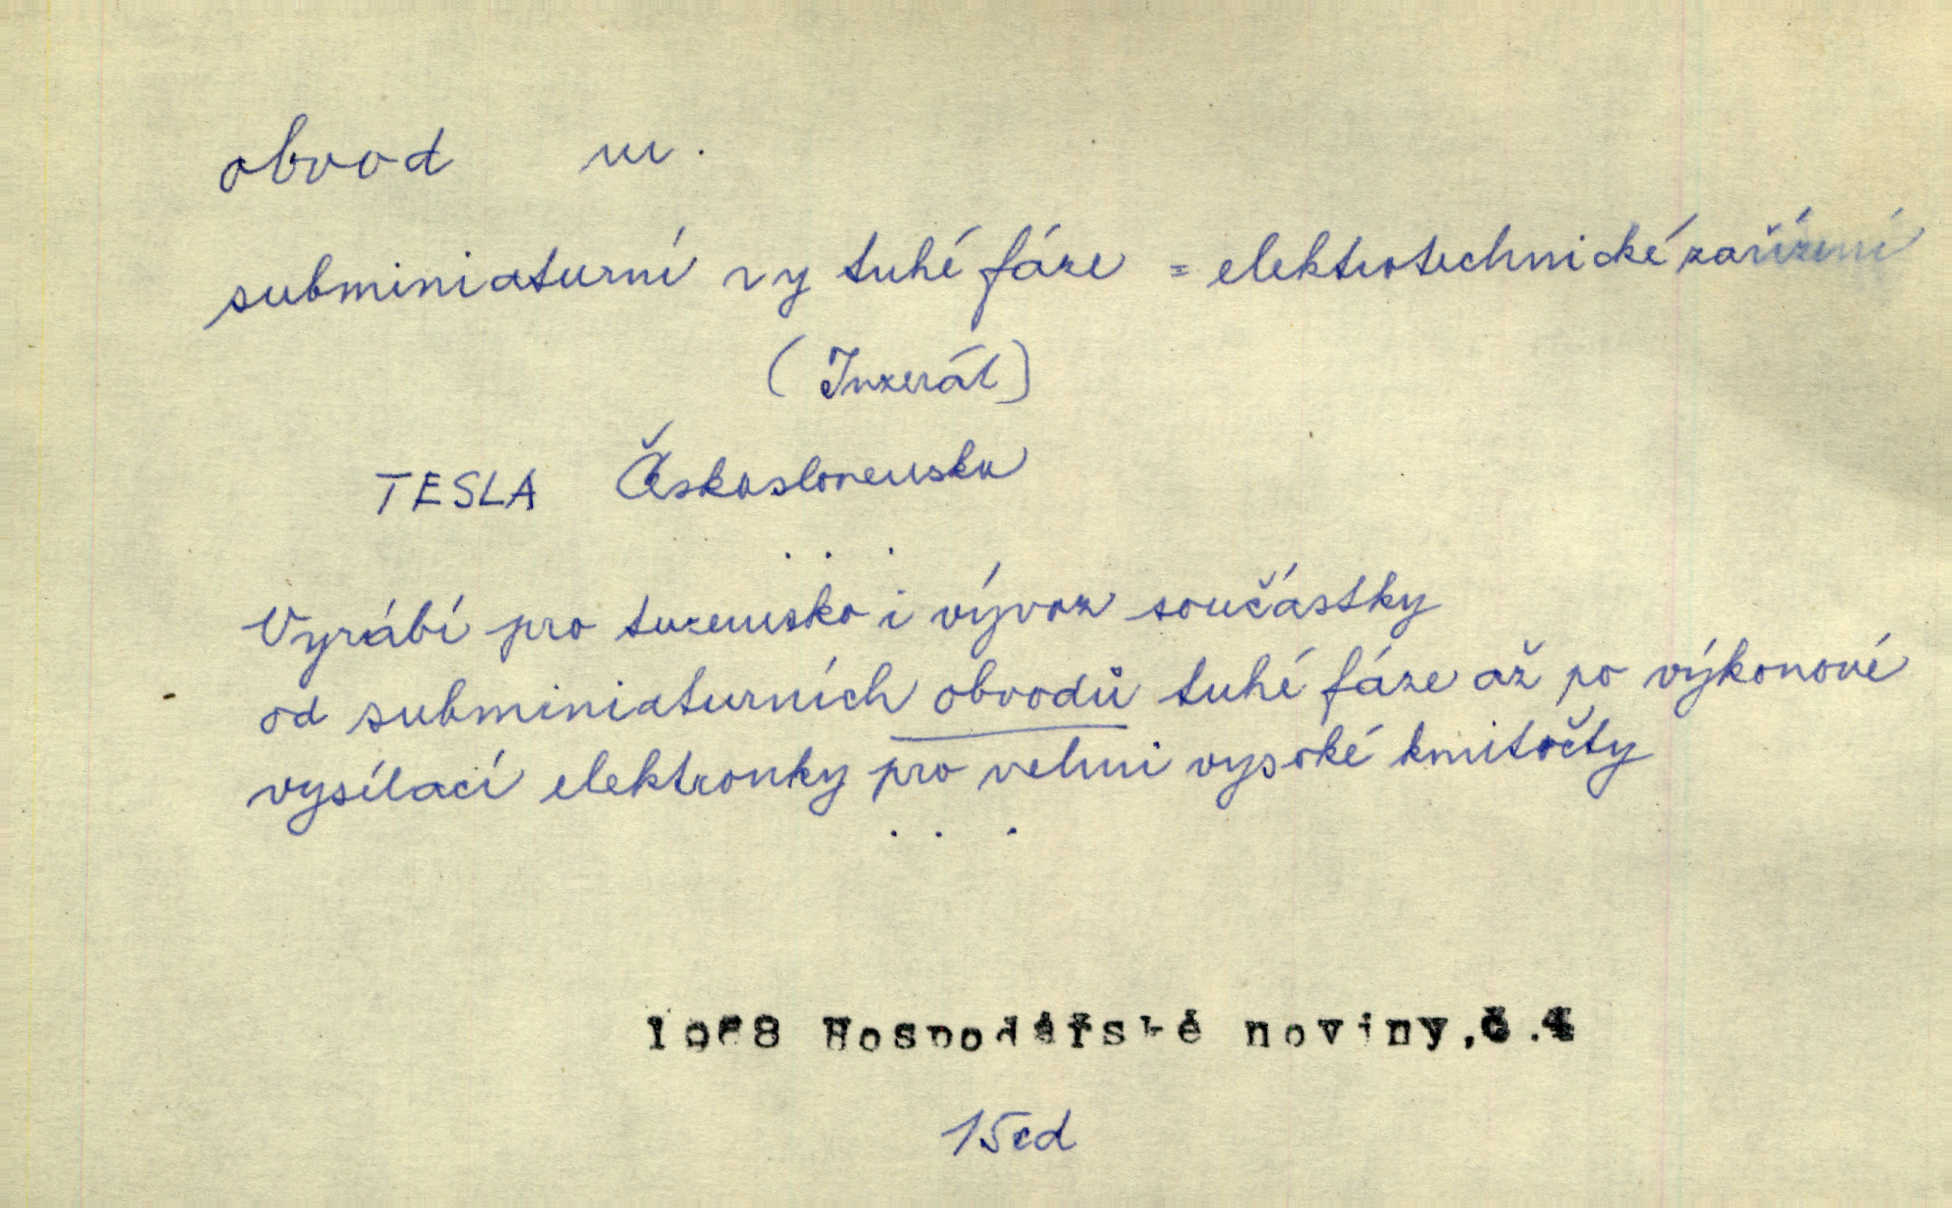 obvod m.
subminiaturní ~y tuhé fáze = elektrotechnické zařízení
(Inzerát)
TESLA Československo
. . .
Vyrábí pro tuzemsko i vývoz součástky
od subminiaturních obvodů tuhé fáze až po výkonové
vysílací elektronky pro velmi vysoké kmitočty
. . .
1968 Hospodářské noviny,č.4
15cd